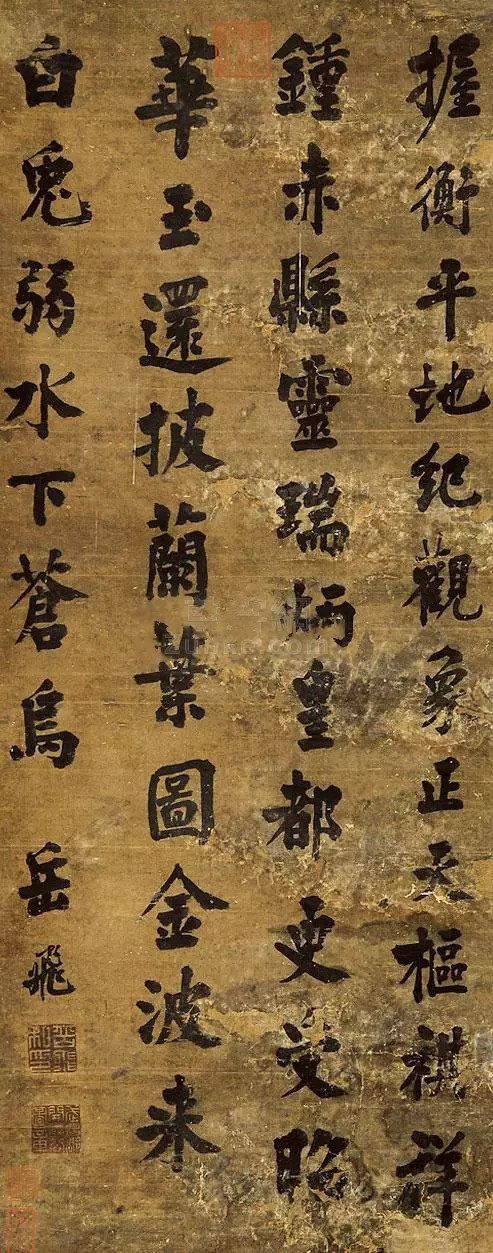 握衡平地紀觀象正天樞祺祥
鍾赤縣靈瑞炳皇都更受昭
華玉還披蘭葉圖金波来
白兔弱水下蒼烏
岳飛